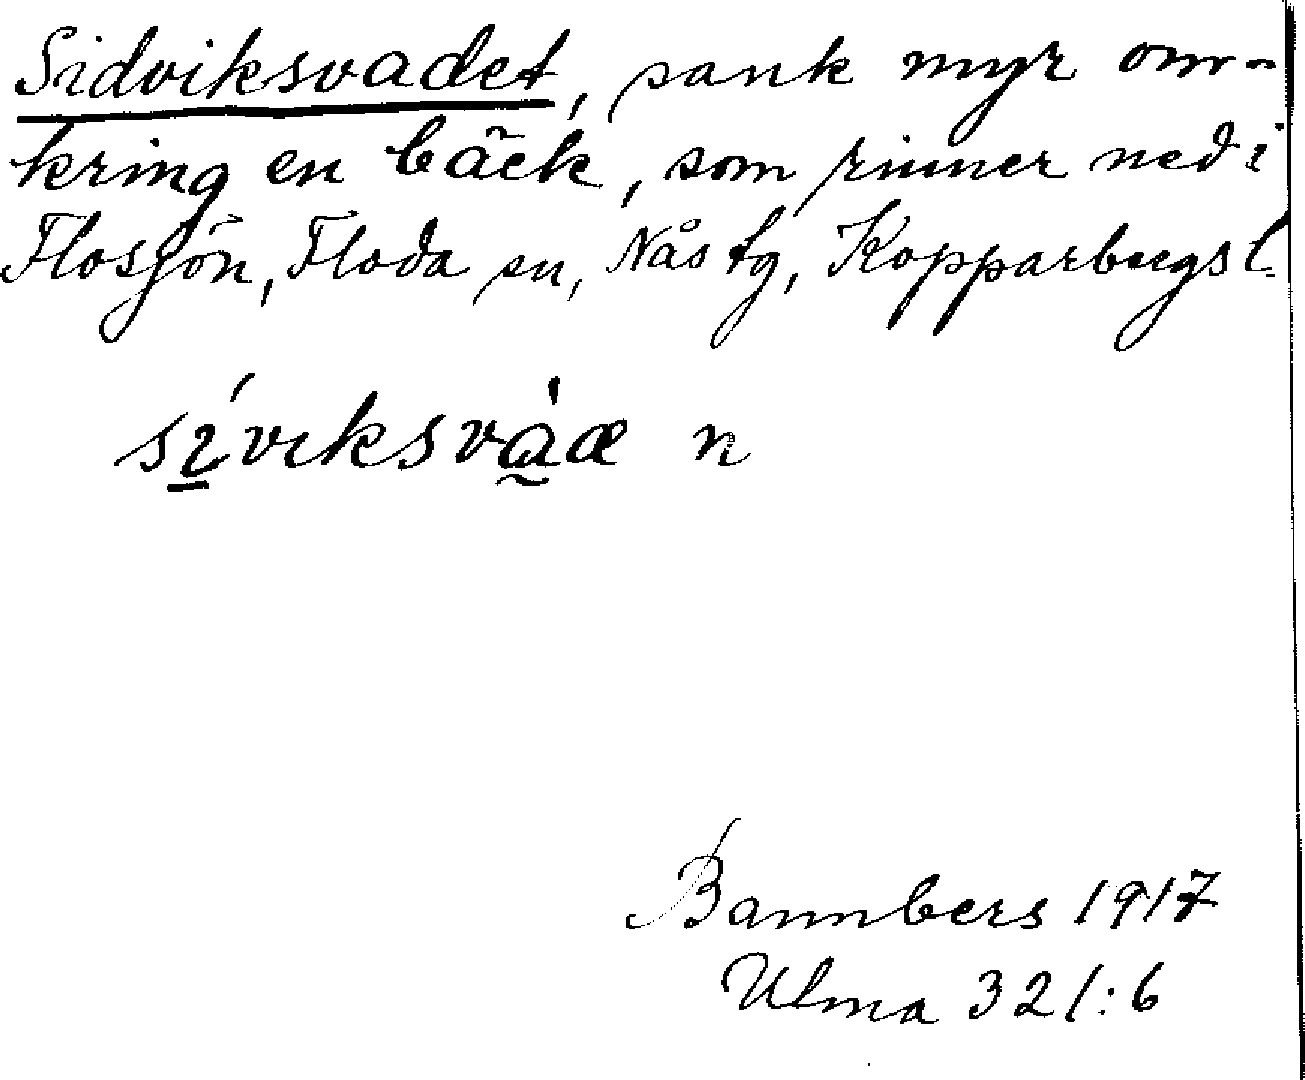 Sidviksvadet, sank myr om-
kring en bäck, som rinner ned i
Flosjön, Floda sn, Nås tg, Kopparbergs l.
síviksvàæ n
Bannbers 1917
Ulma 321:6